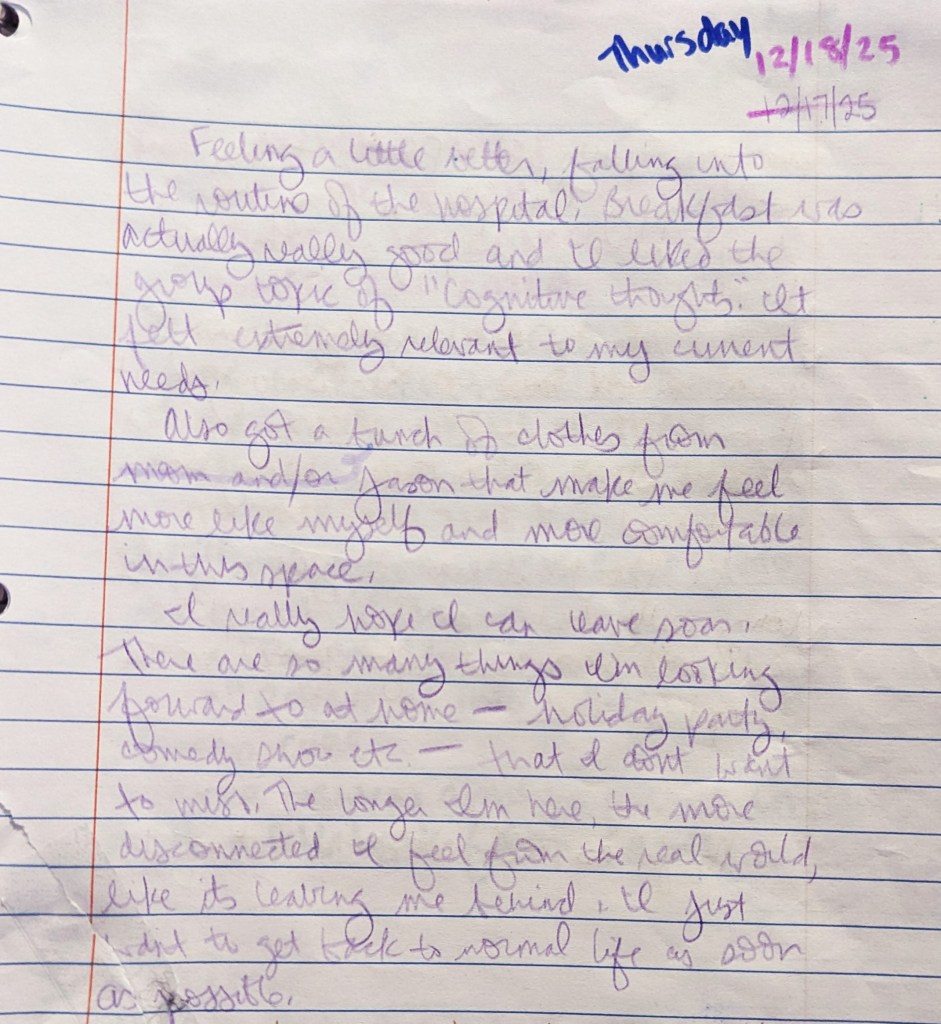 Thursday 12/18/25
12/17/25
Feeling a little better, falling into
the routine of the hospital. Breakfast was
actually really good and I liked the
group topic of "Cognitive thoughts." It
felt extremely relevant to my current
needs.
Also got a bunch of clothes from
mom and/or Jason that make me feel
more like myself and more comfortable
in this space.
I really hope I can leave soon.
There are so many things I'm looking
forward to at home — holiday party,
comedy show etc. — that I dont want
to miss. The longer I'm here, the more
disconnected I feel from the real world,
like its leaving me behind. I just
want to get back to normal life as soon
as possible.